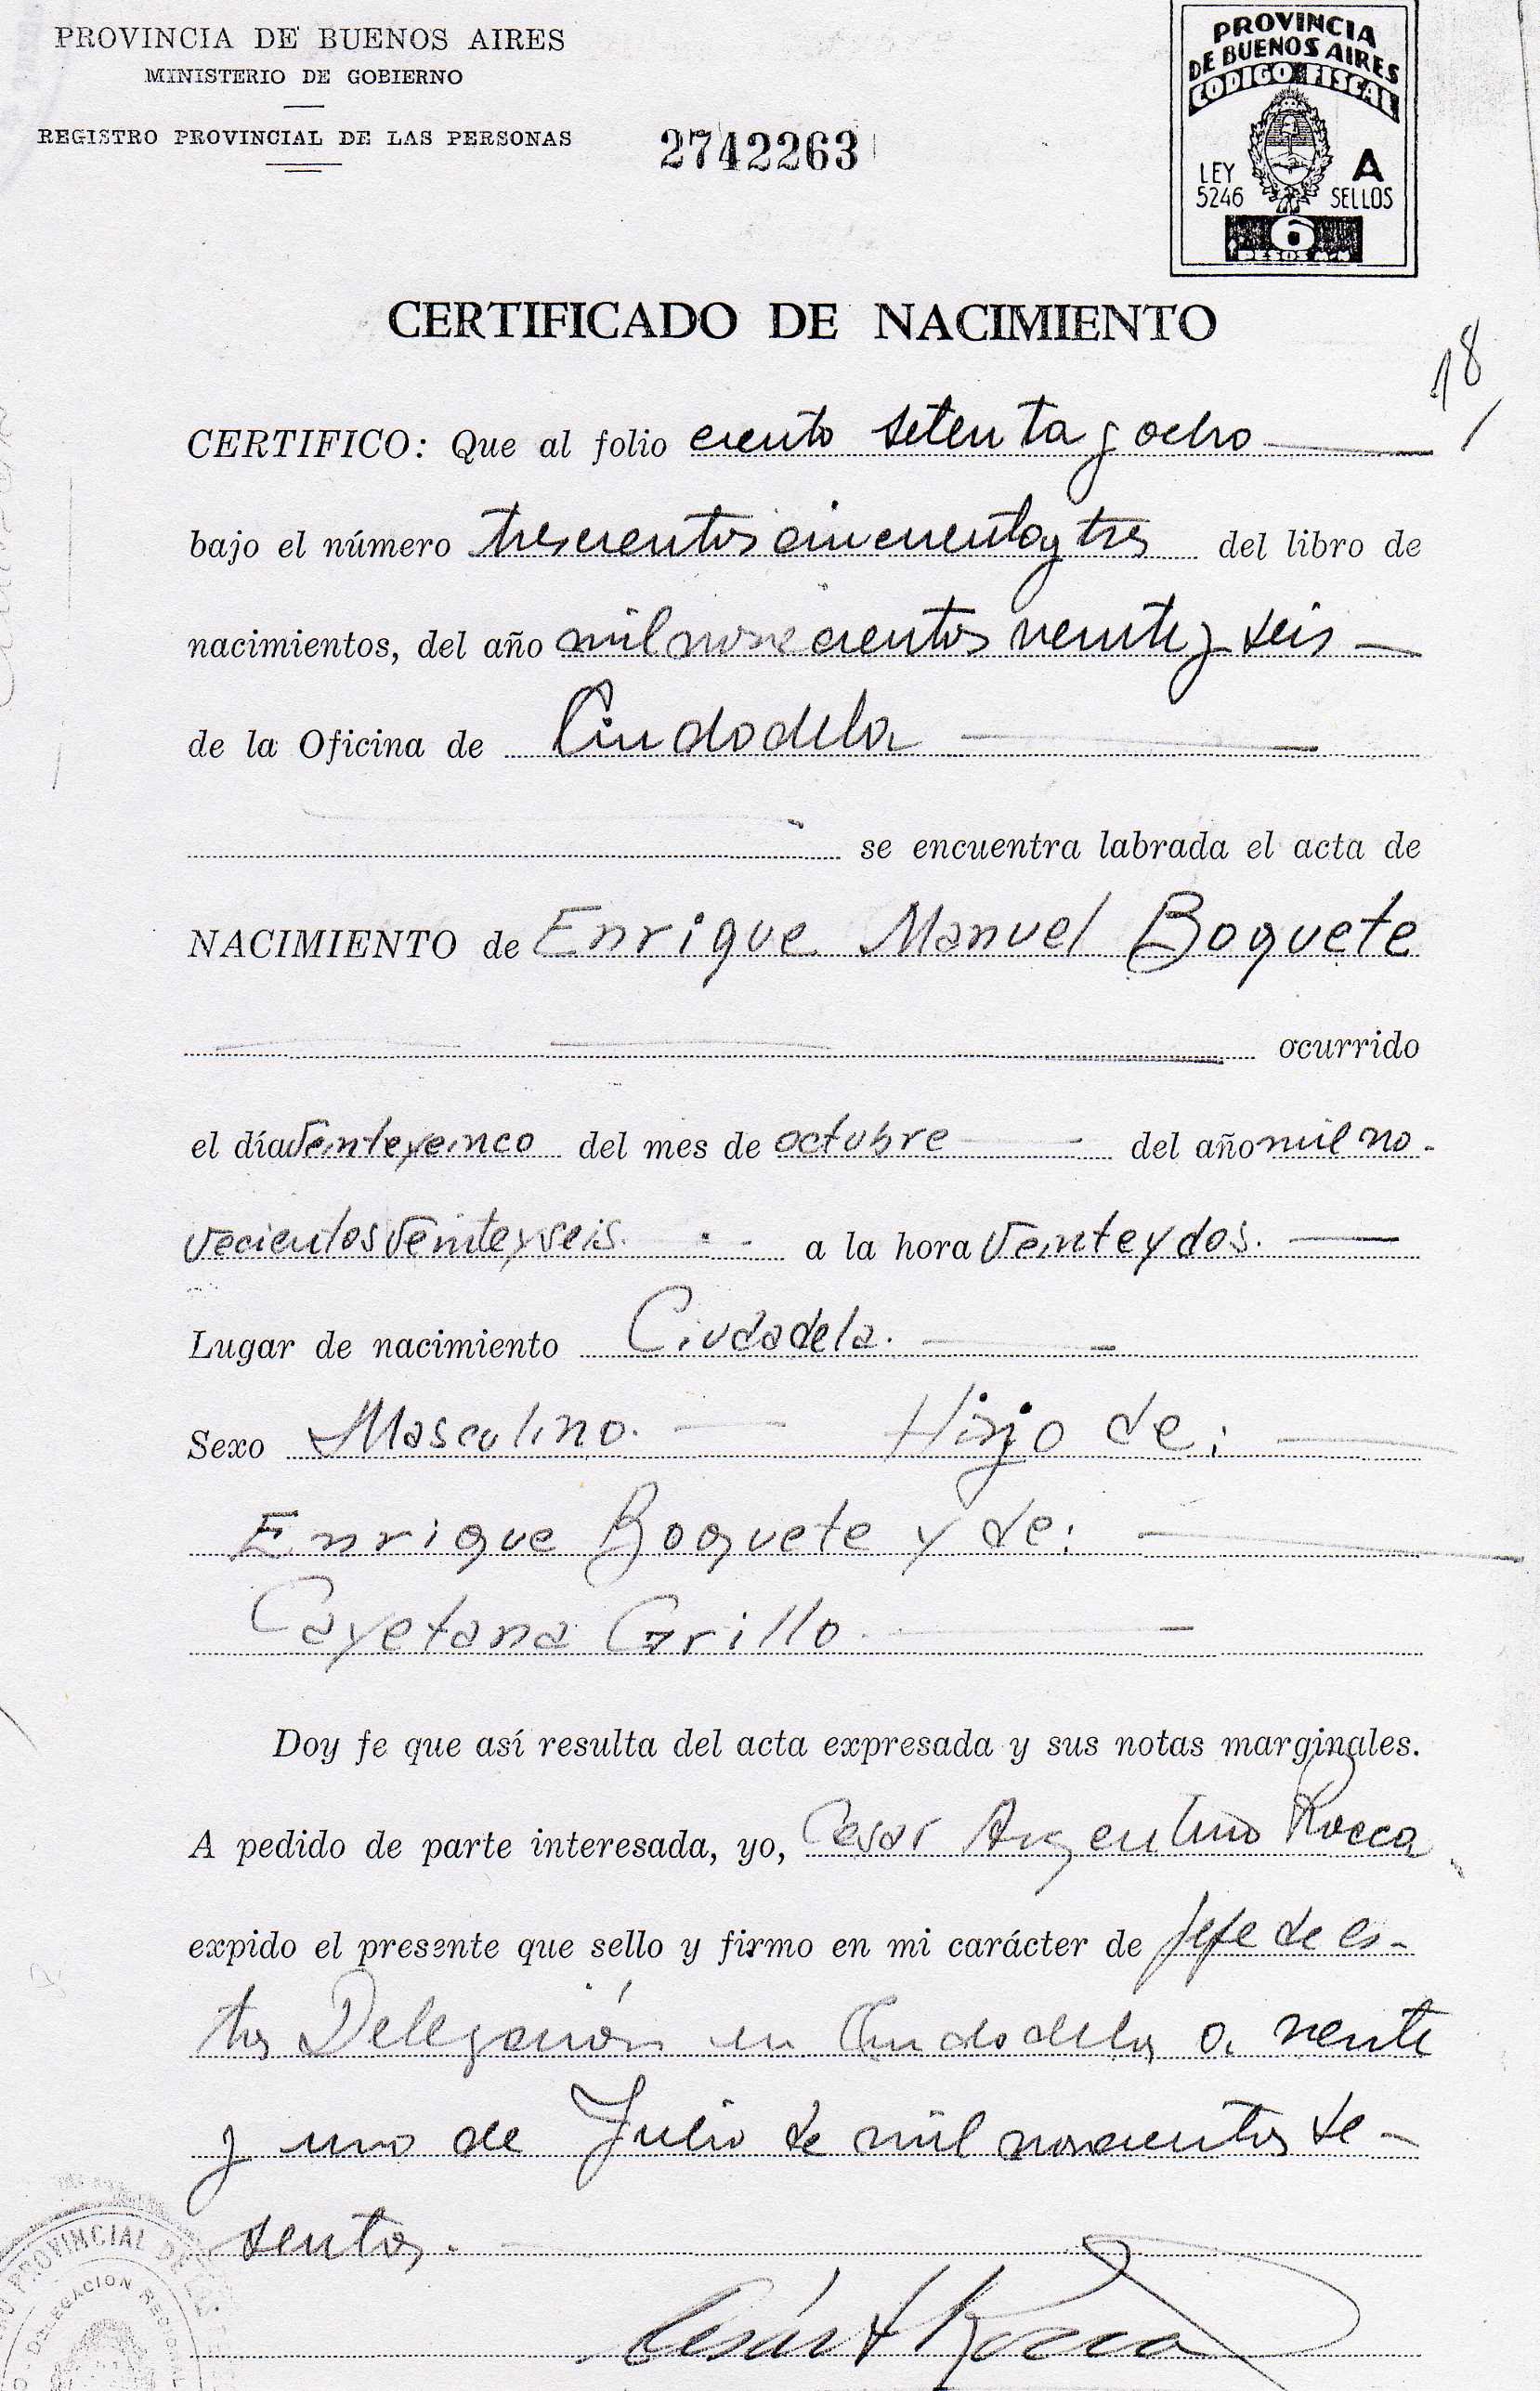 PROVINCIA DE BUENOS AIRES
MINISTERIO DE GOBIERNO
REGISTRO PROVINCIAL DE LAS PERSONAS
2742263
PROVINCIA
DE BUENOS AIRES
CODIGO FISCAL
LEY 5246
A SELLOS
6
PESOS M/N
CERTIFICADO DE NACIMIENTO
18
CERTIFICO: Que al folio ciento setenta y ocho
bajo el número trescientos cincuenta y tres del libro de
nacimientos, del año mil novecientos veinte y seis
de la Oficina de Ciudadela
se encuentra labrada el acta de
NACIMIENTO de Enrique Manuel Boquete
ocurrido
el día veinte y cinco del mes de octubre del año mil no-
vecientos veinte y seis. a la hora veinte y dos.
Lugar de nacimiento Ciudadela.
Sexo Masculino. Hijo de:
Enrique Boquete y de:
Cayetana Grillo.
Doy fe que así resulta del acta expresada y sus notas marginales.
A pedido de parte interesada, yo, Cesar Argentino Rocca
expido el presente que sello y firmo en mi carácter de jefe de es-
ta Delegación en Ciudadela a veinte
y uno de Julio de mil novecientos se-
senta.
César A Rocca
PROVINCIAL DE
DELEGACION REGIONAL